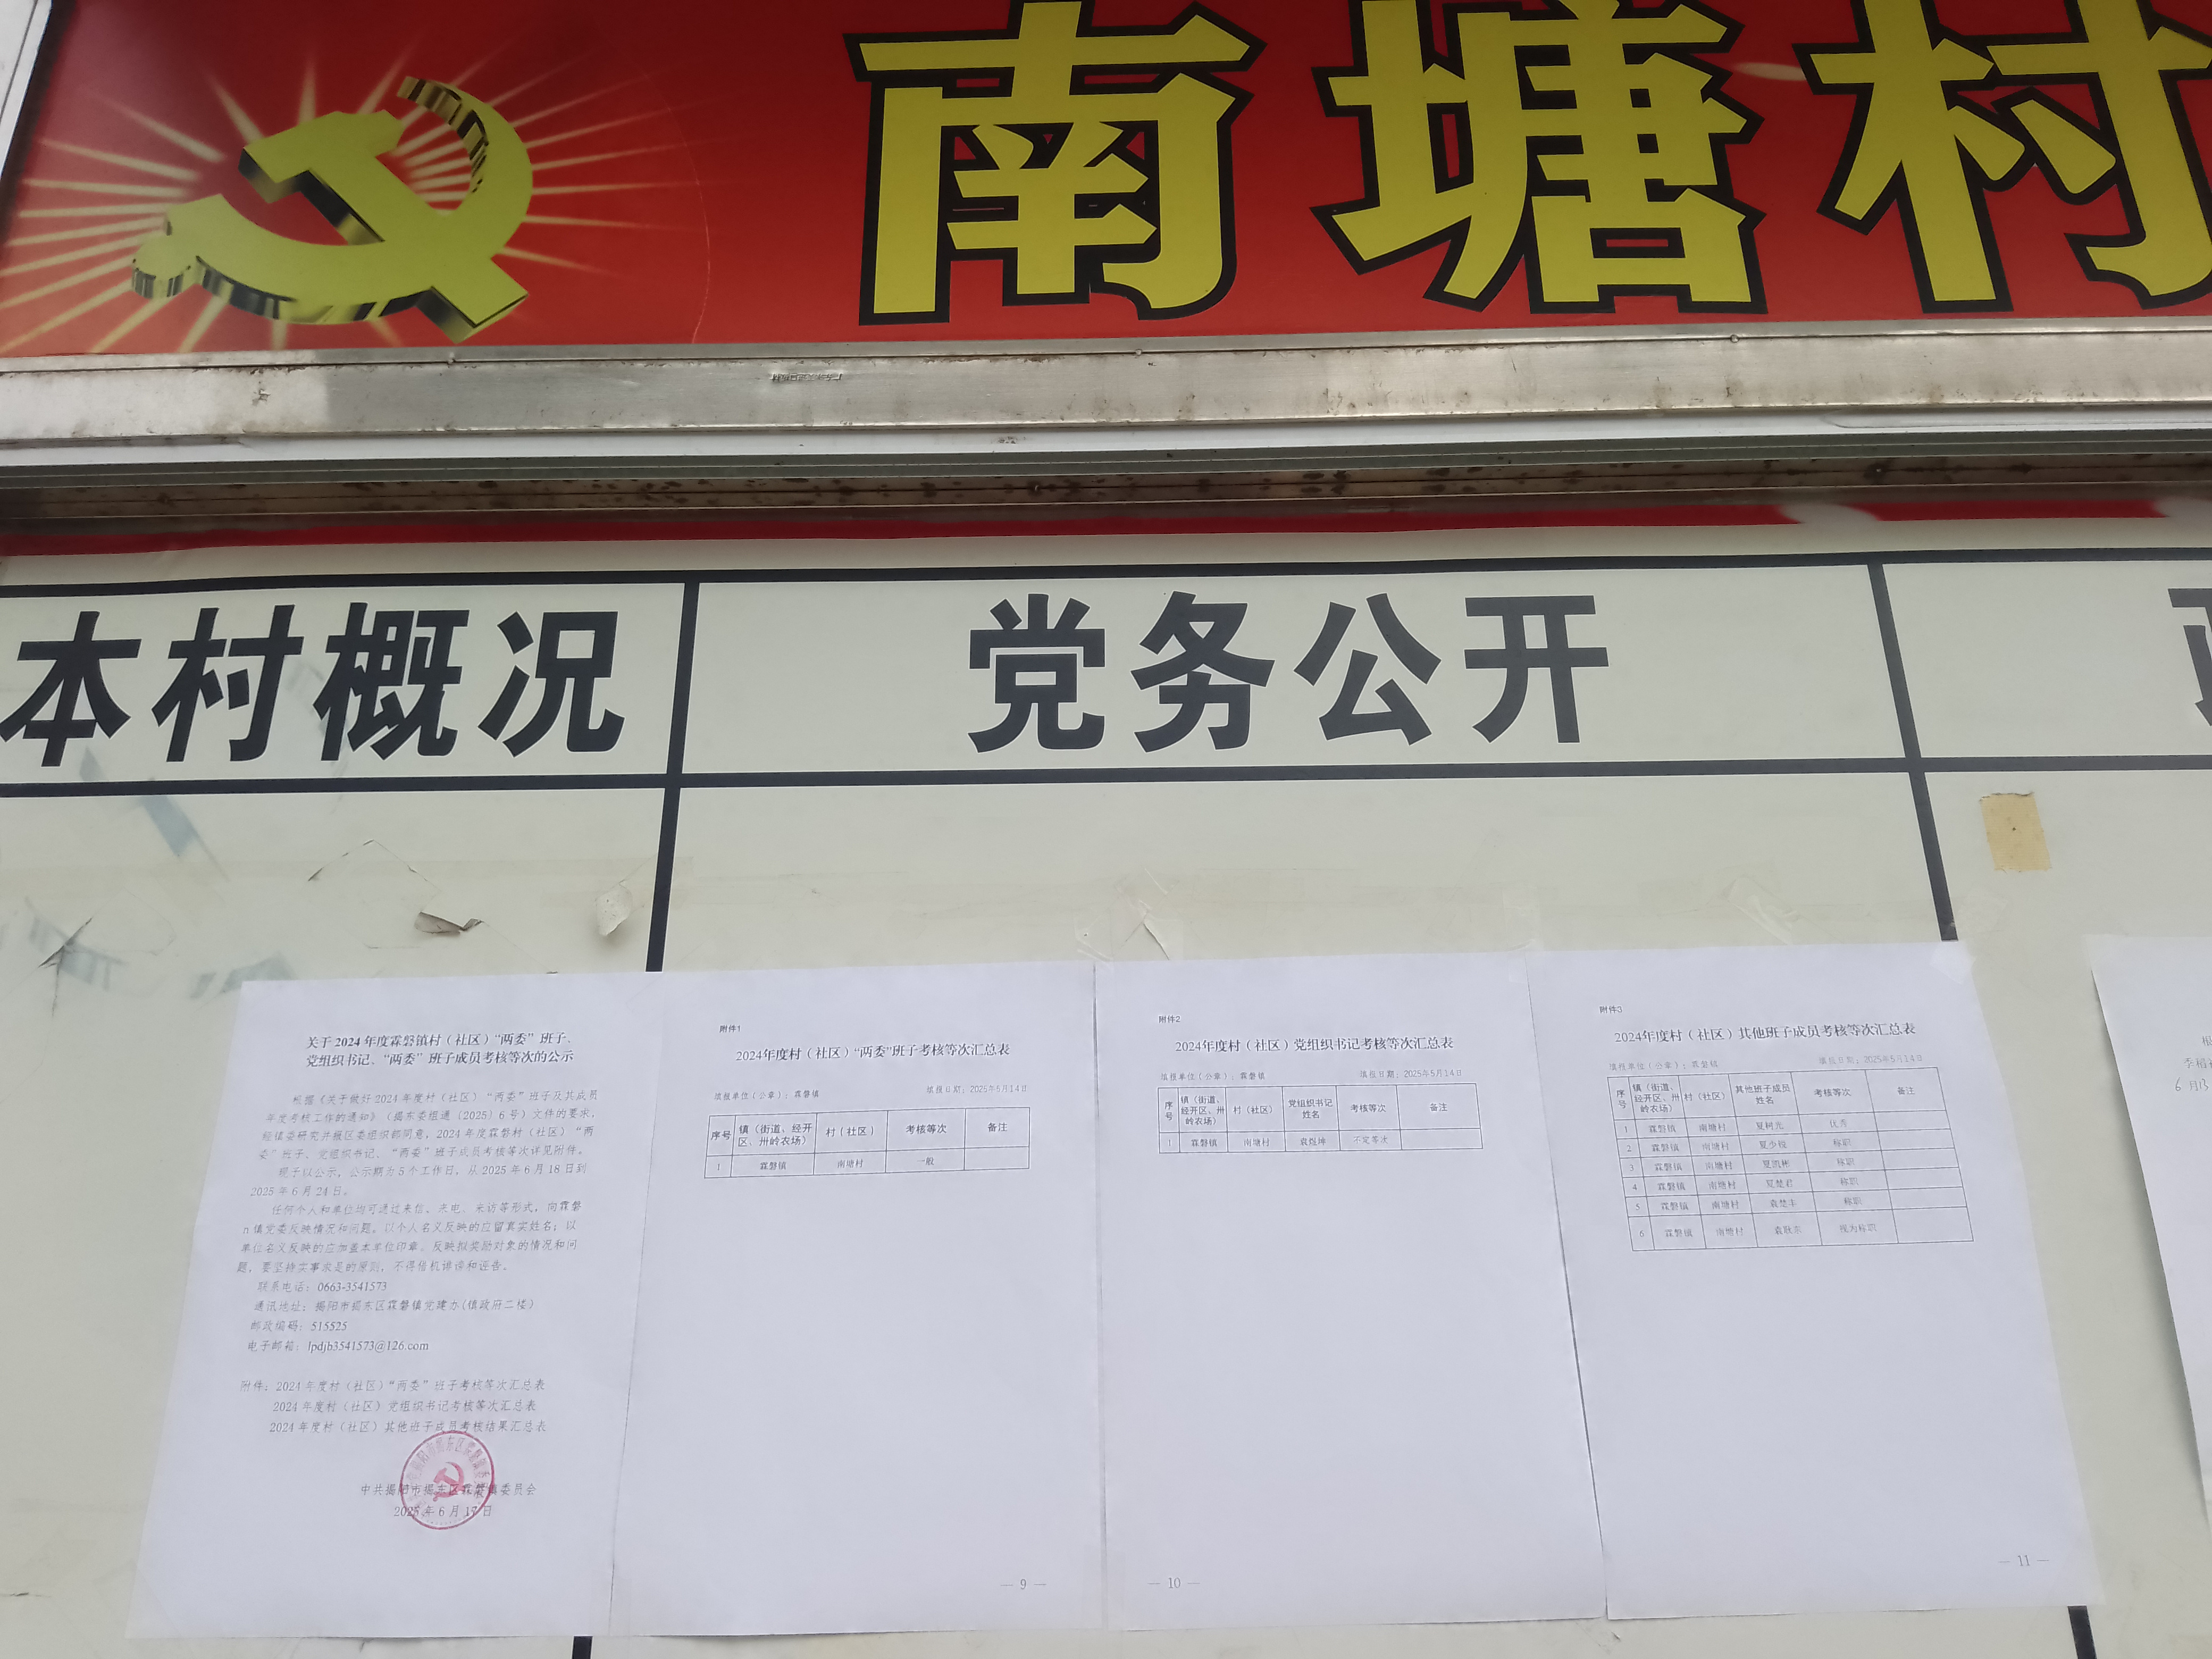 南塘村
本村概况
党务公开
关于2024年度霖磐镇村（社区）“两委”班子、
党组织书记、“两委”班子成员考核等次的公示
根据《关于做好2024年度村（社区）“两委”班子及其成员
年度考核工作的通知》（揭东委组通〔2025〕6号）文件的要求，
经镇委研究并报区委组织部同意，2024年度霖磐村（社区）“两
委”班子、党组织书记、“两委”班子成员考核等次详见附件。
现予以公示，公示期为5个工作日，从2025年6月18日到
2025年6月24日。
任何个人和单位均可通过来信、来电、来访等形式，向霖磐
n镇党委反映情况和问题。以个人名义反映的应留真实姓名；以
单位名义反映的应加盖本单位印章。反映拟奖励对象的情况和问
题，要坚持实事求是的原则，不得借机诽谤和诬告。
联系电话：0663-3541573
通讯地址：揭阳市揭东区霖磐镇党建办(镇政府二楼)
邮政编码：515525
电子邮箱：lpdjb3541573@126.com
附件：2024年度村（社区）“两委”班子考核等次汇总表
2024年度村（社区）党组织书记考核等次汇总表
2024年度村（社区）其他班子成员考核结果汇总表
中共揭阳市揭东区霖磐镇委员会
2025年6月17日
附件1
2024年度村（社区）“两委”班子考核等次汇总表
填报单位（公章）：霖磐镇 填报日期：2025年5月14日
序号 镇（街道、经开区、卅岭农场） 村（社区） 考核等次 备注
1 霖磐镇 南塘村 一般
— 9 —
附件2
2024年度村（社区）党组织书记考核等次汇总表
填报单位（公章）：霖磐镇 填报日期：2025年5月14日
序号 镇（街道、经开区、卅岭农场） 村（社区） 党组织书记姓名 考核等次 备注
1 霖磐镇 南塘村 袁煜坤 不定等次
— 10 —
附件3
2024年度村（社区）其他班子成员考核等次汇总表
填报单位（公章）：霖磐镇 填报日期：2025年5月14日
序号 镇（街道、经开区、卅岭农场） 村（社区） 其他班子成员姓名 考核等次 备注
1 霖磐镇 南塘村 夏树光 优秀
2 霖磐镇 南塘村 夏少锐 称职
3 霖磐镇 南塘村 夏凯彬 称职
4 霖磐镇 南塘村 夏楚君 称职
5 霖磐镇 南塘村 袁楚丰 称职
6 霖磐镇 南塘村 袁耿东 视为称职
— 11 —
6月13